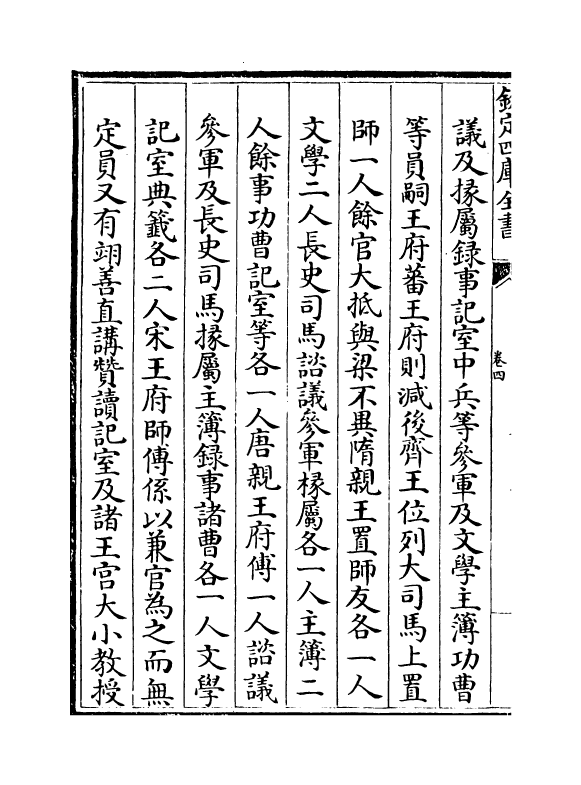 欽定四庫全書
卷四
議及掾屬録事記室中兵等參軍及文學主簿功曹
等員嗣王府蕃王府則減後齊王位列大司馬上置
師一人餘官大抵與梁不異隋親王置師友各一人
文學二人長史司馬諮議參軍掾屬各一人主簿二
人餘事功曹記室等各一人唐親王府傅一人諮議
參軍及長史司馬掾屬主簿録事諸曹各一人文學
記室典籤各二人宋王府師傅係以兼官為之而無
定員又有翊善直講贊讀記室及諸王宫大小教授